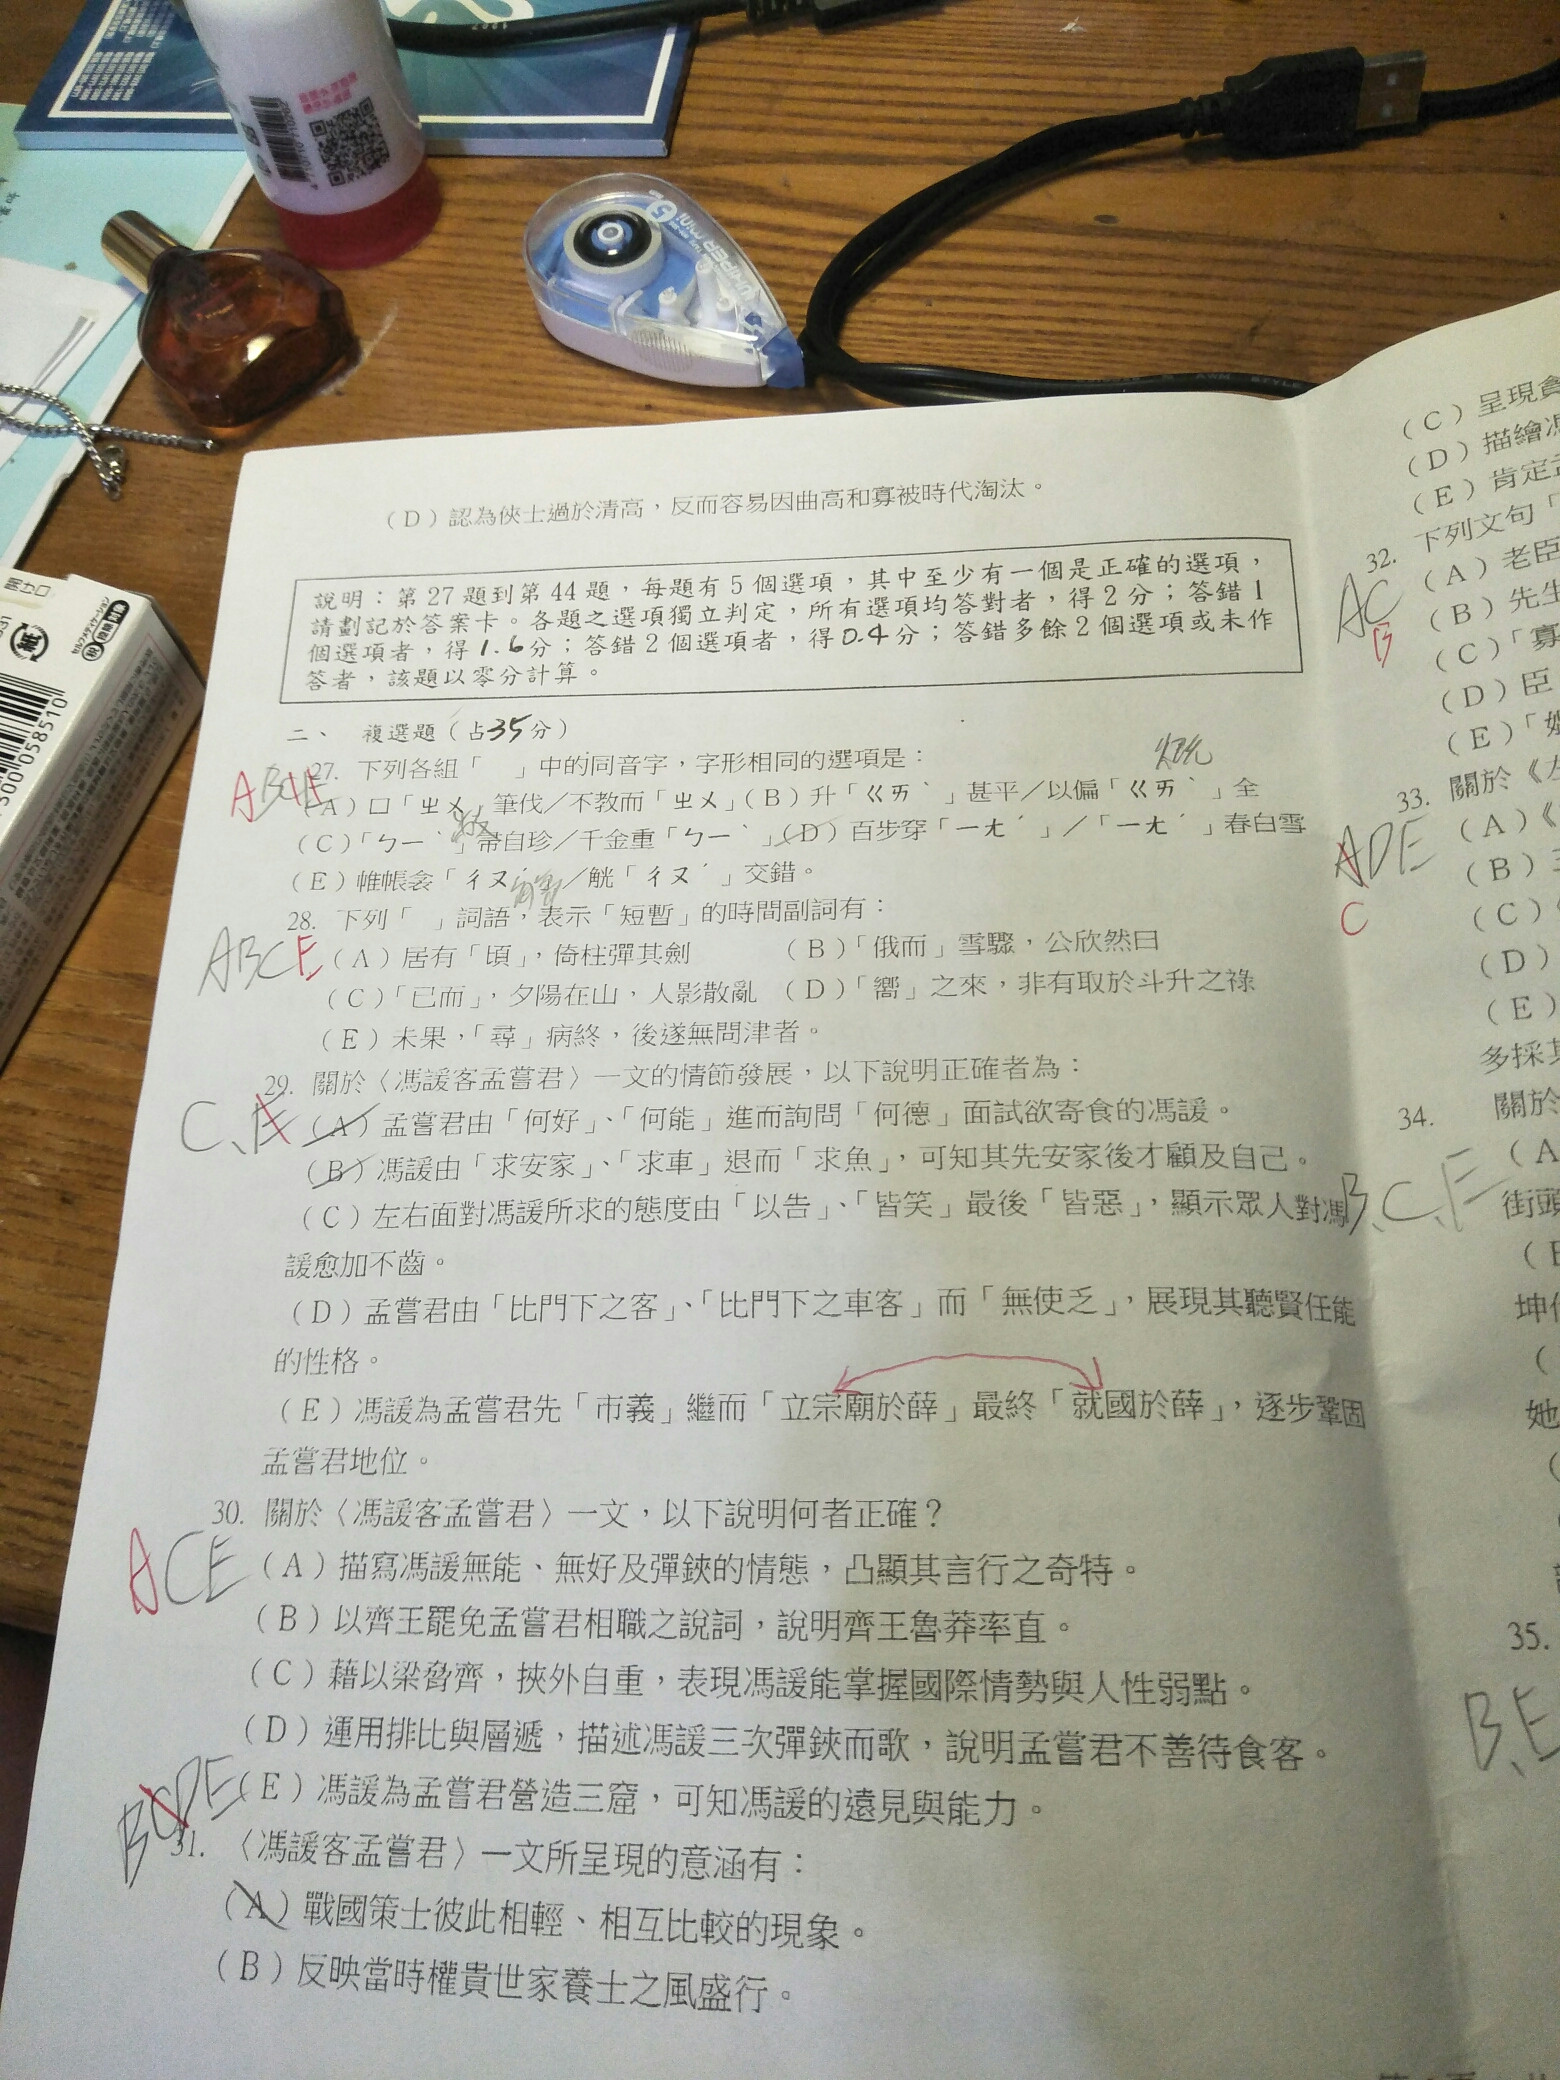 (D)認為俠士過於清高，反而容易因曲高和寡被時代淘汰。
說明：第27題到第44題，每題有5個選項，其中至少有一個是正確的選項，
請劃記於答案卡。各題之選項獨立判定，所有選項均答對者，得2分；答錯1
個選項者，得1.6分；答錯2個選項者，得0.4分；答錯多餘2個選項或未作
答者，該題以零分計算。
二、 複選題（占35分）
27. 下列各組「 」中的同音字，字形相同的選項是：
(A)口「ㄓㄨ」筆伐／不教而「ㄓㄨ」(B)升「ㄍㄞˋ」甚平／以偏「ㄍㄞˋ」全
(C)「ㄅㄧˋ」帚自珍／千金重「ㄅㄧˋ」(D)百步穿「ㄧㄤˊ」／「ㄧㄤˊ」春白雪
(E)帷帳衾「ㄔㄡˊ」／觥「ㄔㄡˊ」交錯。
28. 下列「 」詞語，表示「短暫」的時間副詞有：
ABCE
(A)居有「頃」，倚柱彈其劍 (B)「俄而」雪驟，公欣然曰
(C)「已而」，夕陽在山，人影散亂 (D)「嚮」之來，非有取於斗升之祿
(E)未果，「尋」病終，後遂無問津者。
29. 關於〈馮諼客孟嘗君〉一文的情節發展，以下說明正確者為：
(A)孟嘗君由「何好」、「何能」進而詢問「何德」面試欲寄食的馮諼。
(B)馮諼由「求安家」、「求車」退而「求魚」，可知其先安家後才顧及自己。
(C)左右面對馮諼所求的態度由「以告」、「皆笑」最後「皆惡」，顯示眾人對馮
諼愈加不齒。
(D)孟嘗君由「比門下之客」、「比門下之車客」而「無使乏」，展現其聽賢任能
的性格。
(E)馮諼為孟嘗君先「市義」繼而「立宗廟於薛」最終「就國於薛」，逐步鞏固
孟嘗君地位。
30. 關於〈馮諼客孟嘗君〉一文，以下說明何者正確？
ACE
(A)描寫馮諼無能、無好及彈鋏的情態，凸顯其言行之奇特。
(B)以齊王罷免孟嘗君相職之說詞，說明齊王魯莽率直。
(C)藉以梁脅齊，挾外自重，表現馮諼能掌握國際情勢與人性弱點。
(D)運用排比與層遞，描述馮諼三次彈鋏而歌，說明孟嘗君不善待食客。
(E)馮諼為孟嘗君營造三窟，可知馮諼的遠見與能力。
BCDE
31. 〈馮諼客孟嘗君〉一文所呈現的意涵有：
(A)戰國策士彼此相輕、相互比較的現象。
(B)反映當時權貴世家養士之風盛行。
(C)呈現貪
(D)描繪馮
(E)肯定
32. 下列文句「
AC
B
(A)老臣
(B)先生
(C)「寡
(D)臣
(E)「
33. 關於《左
ADE
C
(A)《
(B)
(C)
(D)
(E)
多採其
34. 關於
B、C、E
(A
街頭
坤
她
35.
B、E